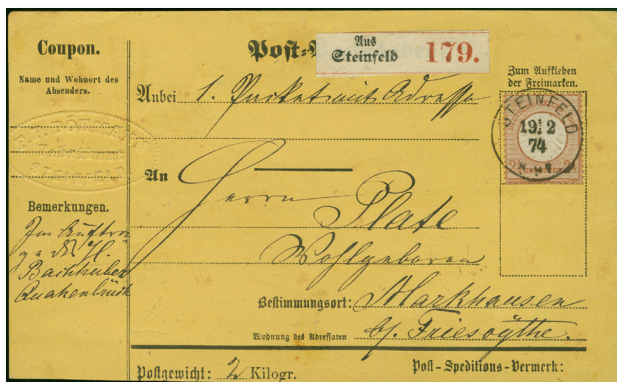 Coupon.
Name und Wohnort des
Absenders.
Bemerkungen.
Im Auftra
ge des H.
Bachhuber
Quakenbrück
Post-
Aus
Steinfeld 179.
Zum Aufkleben
der Freimarken.
STEINFELD
19 2
74
Anbei 1. Packet mit Adresse
An Herrn Plate
Wohlgeboren
Bestimmungsort: Markhausen
Wohnung des Adressaten b/ Friesoythe.
Postgewicht: 2 Kilogr.
Post-Speditions-Vermerk: